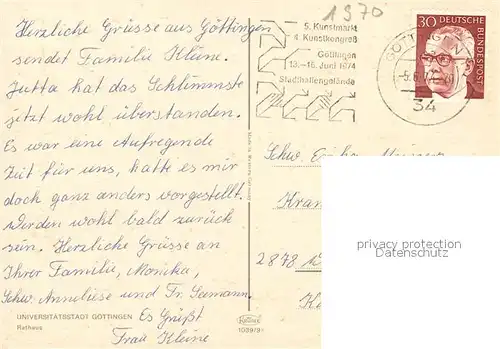 Herzliche Grüsse aus Göttingen
sendet Familie Kleine.
Jutta hat das Schlimmste
jetzt wohl überstanden.
Es war eine Aufregende
Zeit für uns, hatte es mir
doch ganz anders vorgestellt.
Werden wohl bald zurück
sein. Herzliche Grüsse an
Ihrer Familie, Monika,
Schw. Anneliese und Fr. Seemann.
Es Grüßt
Frau Kleine
UNIVERSITÄTSSTADT GÖTTINGEN
Rathaus
1970
5. Kunstmarkt
4. Kunstkongreß
Göttingen
13.-16. Juni 1974
Stadthallengelände
30 DEUTSCHE
BUNDESPOST
34
Schw.
Kran
2878
privacy protection
Datenschutz